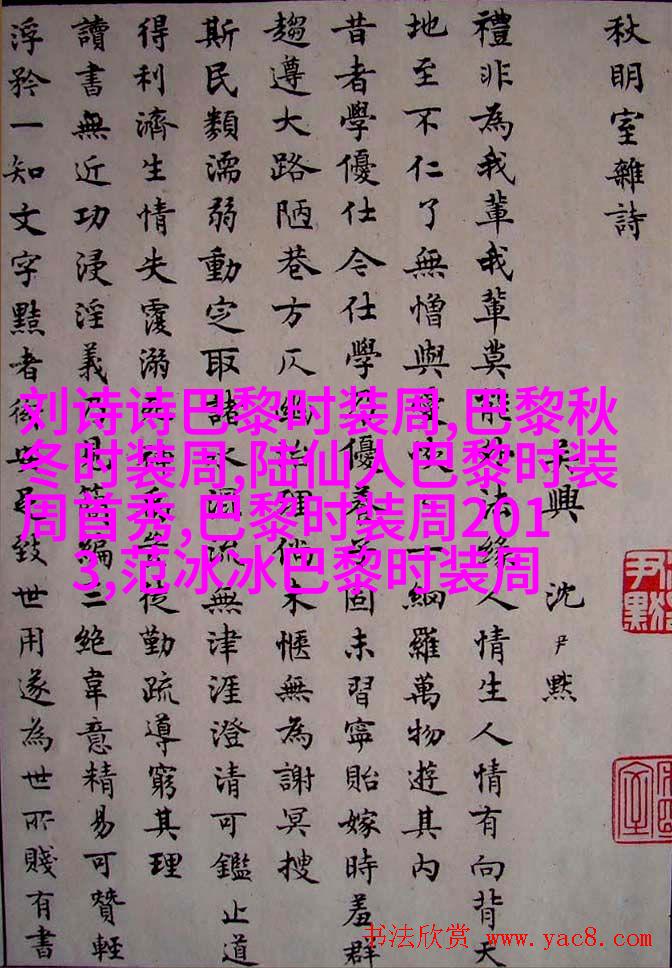 秋明室雜詩
吳興 沈尹默
禮非為我輩我輩莫法緣人情生人情有向背天
地至不仁了無憎與愛一網羅萬物遊其內
昔者學優仕令仕學優養子固未習寧貽嫁時羞群
趨遵大路陋巷方仄理無為謝冥搜
斯民類濡弱動定取諸水洄流無津涯澄清可鑑止道
得利濟生情失覆溺從勤疏導窮其理
讀書無近功浸淫義乃見簡編二絕韋意精易可贊輕
浮矜一知文字黠者致世用遂為世所賤有書
尹默
刘诗诗巴黎时装周,巴黎秋
冬时装周,陆仙人巴黎时装
周首秀,巴黎时装周201
3,范冰冰巴黎时装周
书法欣赏 www.yac8.com